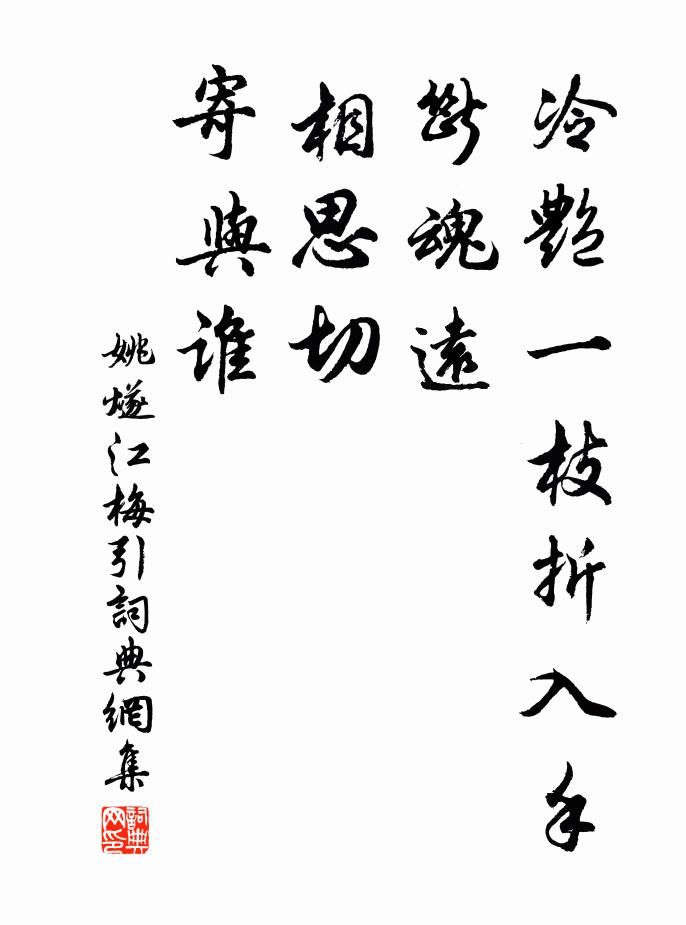 冷艷一枝折入手
斷魂遠
相思切
寄與誰
姚燧江梅引詞典網集
詞典網印